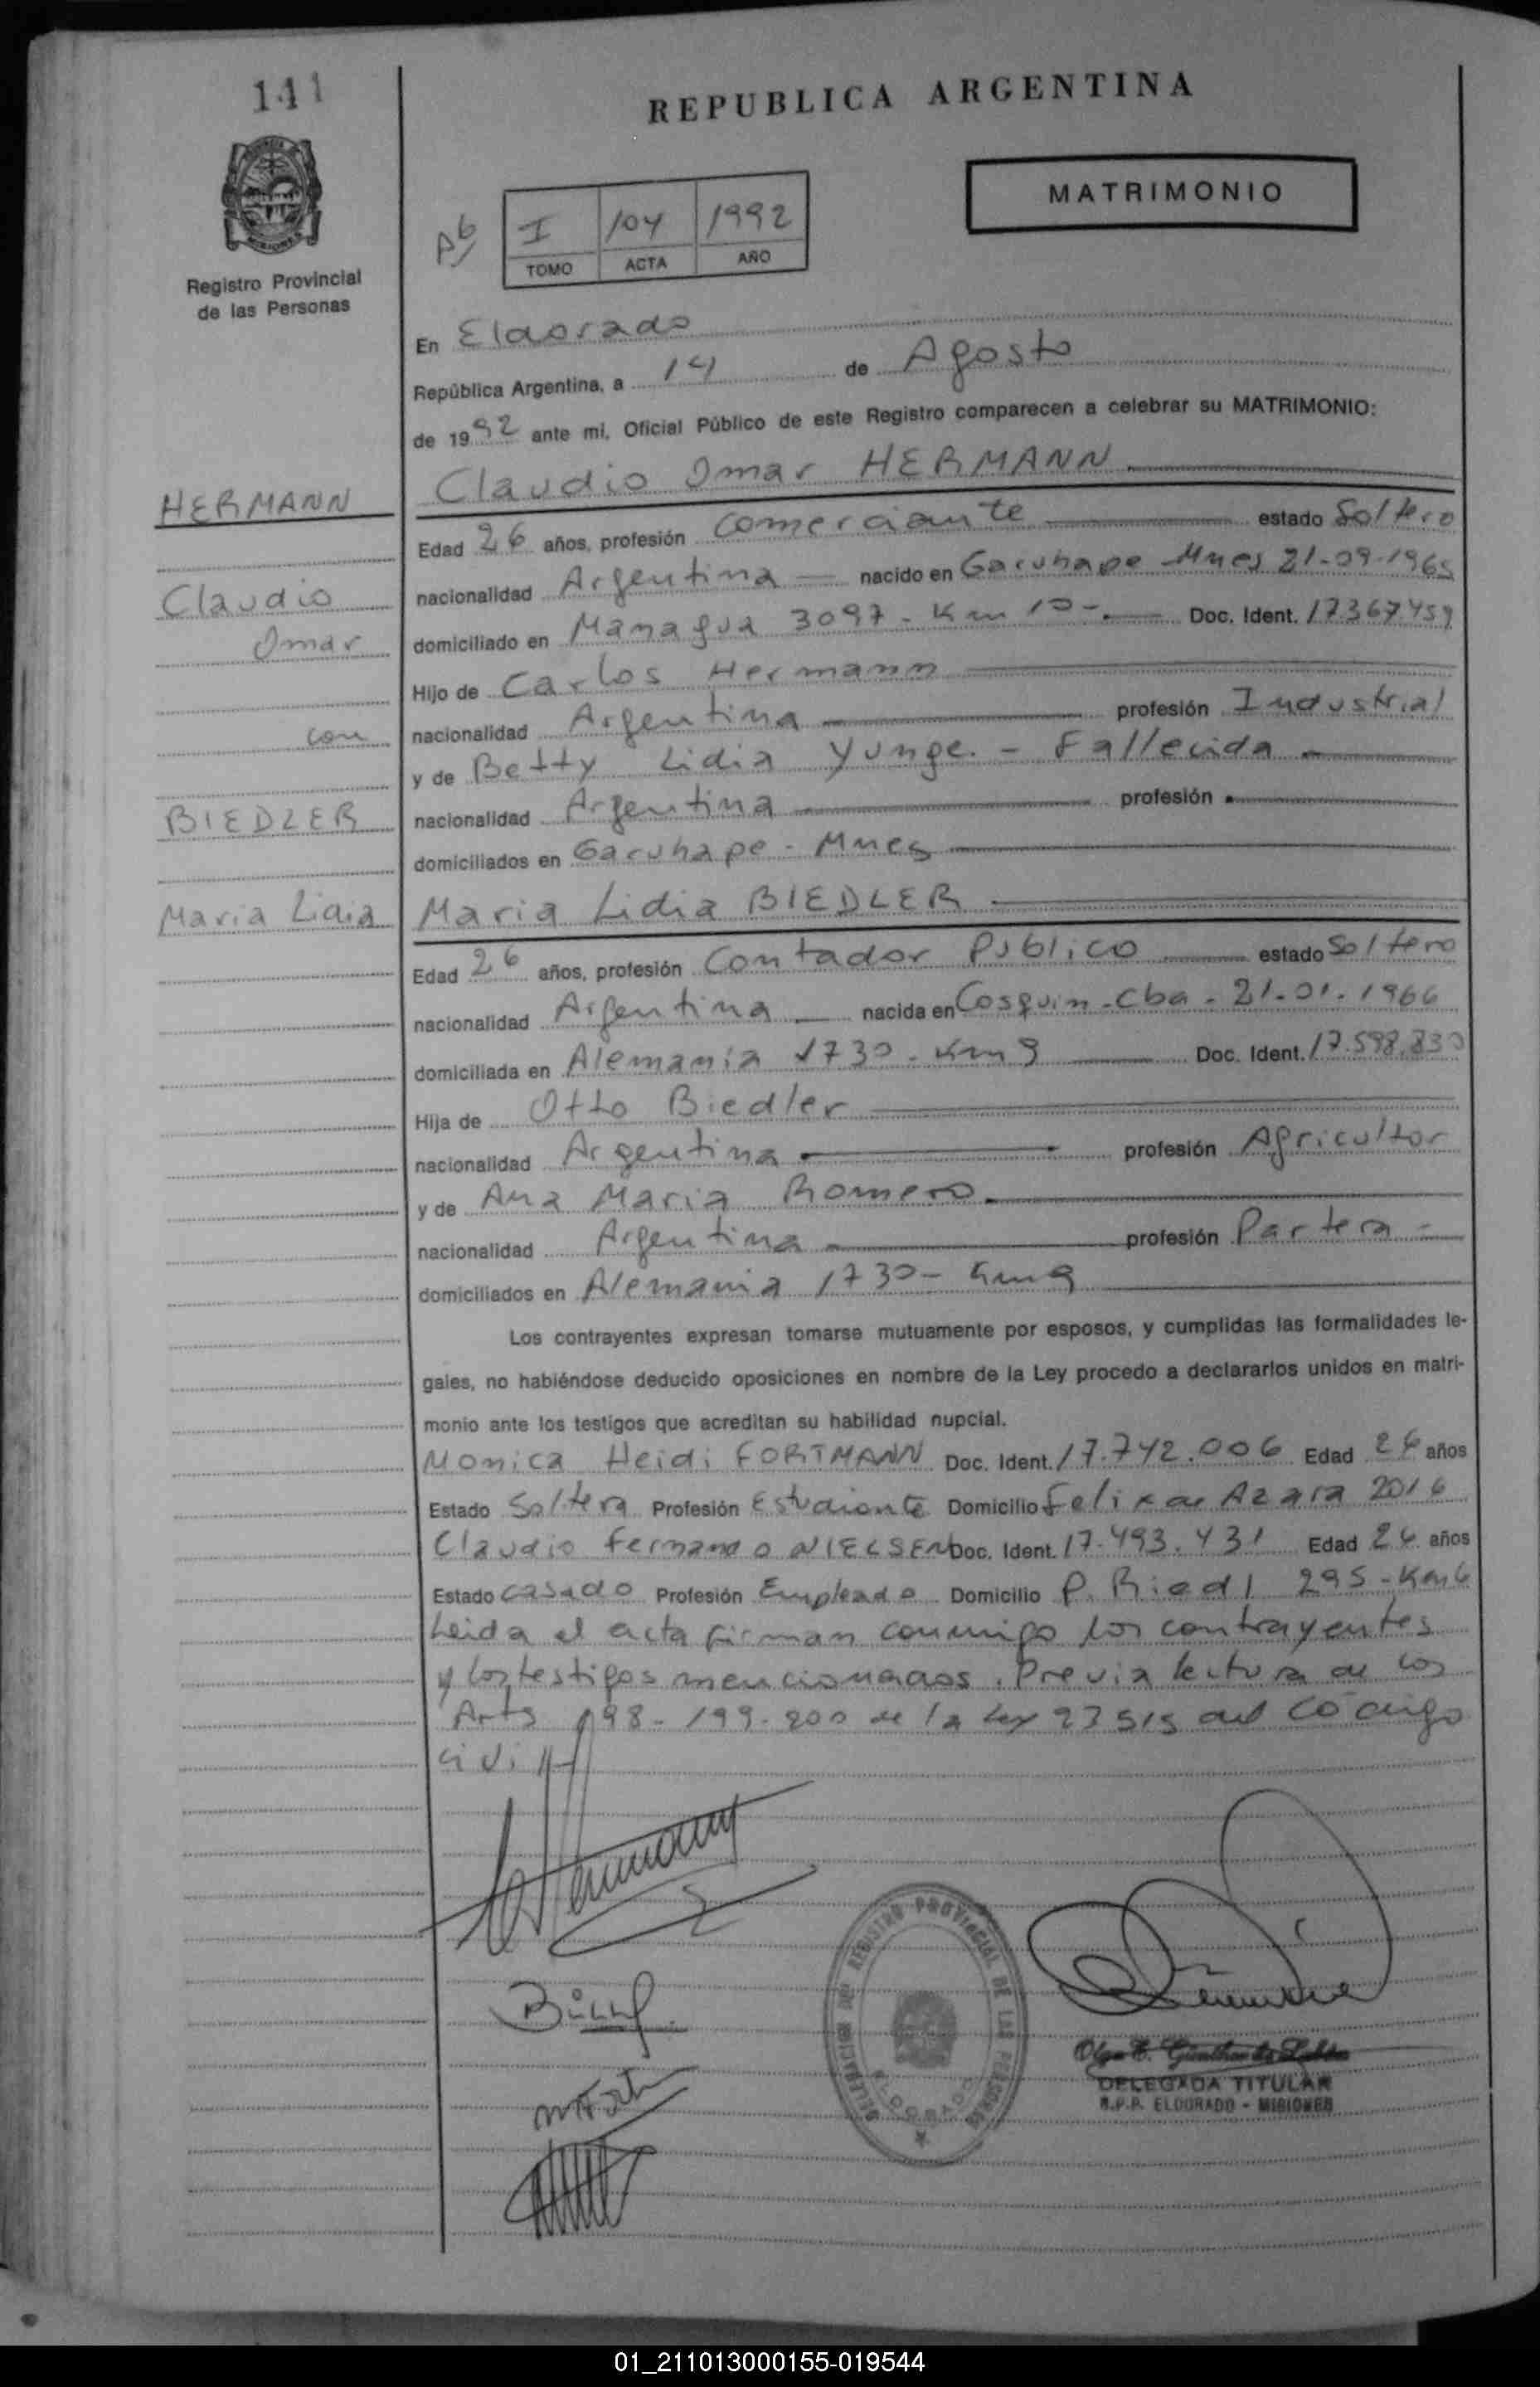 141
REPUBLICA ARGENTINA
MATRIMONIO
I 104 1992
TOMO ACTA AÑO
Registro Provincial
de las Personas
En Eldorado
República Argentina, a 14 de Agosto
de 1992 ante mi, Oficial Público de este Registro comparecen a celebrar su MATRIMONIO:
Claudio Omar HERMANN
HERMANN
Edad 26 años, profesión comerciante estado Soltero
nacionalidad Argentina nacido en Garuhape Mnes 21-09-1965
Claudio
domiciliado en Managua 3097 - Km 10 - Doc. Ident. 17367.459
Omar
Hijo de Carlos Hermann
nacionalidad Argentina profesión Industrial
con
y de Betty Lidia Yunge. - Fallecida
nacionalidad Argentina profesión
BIEDLER
domiciliados en Garuhape - Mnes
Maria Lidia BIEDLER
Maria Lidia
Edad 26 años, profesión Contador Publico estado Soltero
nacionalidad Argentina nacida en Cosquin - Cba - 21-01-1966
domiciliada en Alemania 1730 - Km 9 Doc. Ident. 17.598.830
Hija de Otto Biedler
nacionalidad Argentina profesión Agricultor
y de Ana Maria Romero
nacionalidad Argentina profesión Partera -
domiciliados en Alemania 1730 - Km 9
Los contrayentes expresan tomarse mutuamente por esposos, y cumplidas las formalidades le-
gales, no habiéndose deducido oposiciones en nombre de la Ley procedo a declararlos unidos en matri-
monio ante los testigos que acreditan su habilidad nupcial.
Monica Heidi FORTMANN Doc. Ident. 17.742.006 Edad 26 años
Estado Soltera Profesión Estudiante Domicilio Felix de Azara 2016
Claudio Fernando NIELSEN Doc. Ident. 17.493.431 Edad 26 años
Estado casado Profesión Empleado Domicilio P. Riedl 295 - Km 6
Leida el acta firman conmigo los contrayentes
y los testigos mencionados. Previa lectura de los
Arts 198 - 199 - 200 de la Ley 23515 del Codigo
civil
Hermann
DELEGACION DEL REGISTRO PROVINCIAL DE LAS PERSONAS
ELDORADO
DELEGADA TITULAR
R.P.P. ELDORADO - MISIONES
01_211013000155-019544